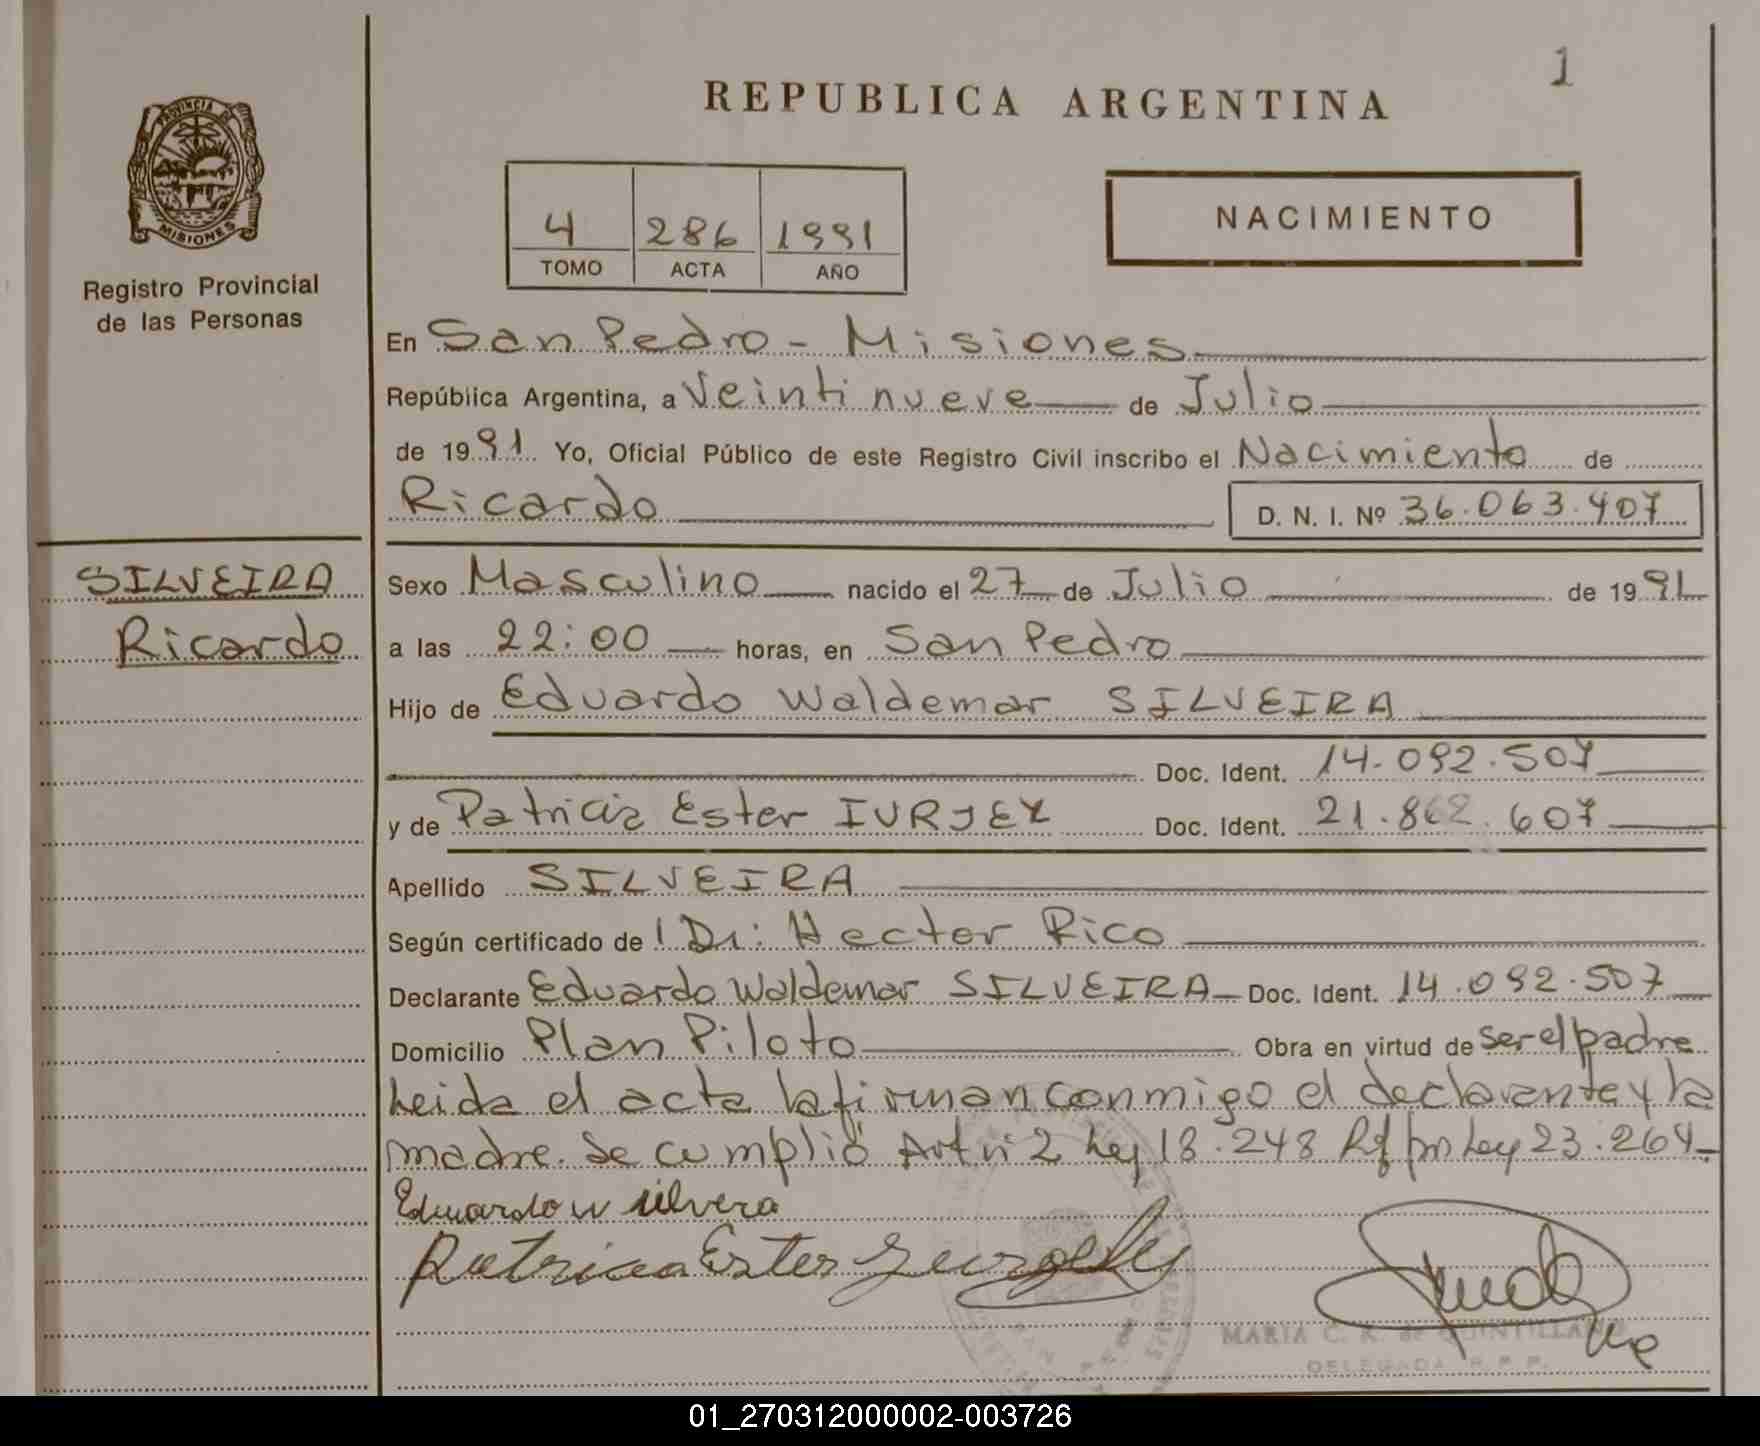 1
REPUBLICA ARGENTINA
PROVINCIA DE
MISIONES
Registro Provincial
de las Personas
4 286 1991
TOMO ACTA AÑO
NACIMIENTO
En San Pedro - Misiones
República Argentina, a Veintinueve de Julio
de 1991 Yo, Oficial Público de este Registro Civil inscribo el Nacimiento de
Ricardo D. N. I. Nº 36.063.407
SILVEIRA
Ricardo
Sexo Masculino nacido el 27 de Julio de 1991
a las 22:00 horas, en San Pedro
Hijo de Eduardo Waldemar SILVEIRA
Doc. Ident. 14.092.507
y de Patricia Ester IURJEY Doc. Ident. 21.862.607
Apellido SILVEIRA
Según certificado de Dr: Hector Rico
Declarante Eduardo Waldemar SILVEIRA Doc. Ident. 14.092.507
Domicilio Plan Piloto Obra en virtud de ser el padre
Leida el acta la firman conmigo el declarante y la
madre. Se cumplió Art nº 2 Ley 18.248 Rf por Ley 23.264-
Eduardo W Silvera
Patricia Ester
MARIA C. K. de QUINTILLAN
DELEGADA R. P. P.
01_270312000002-003726